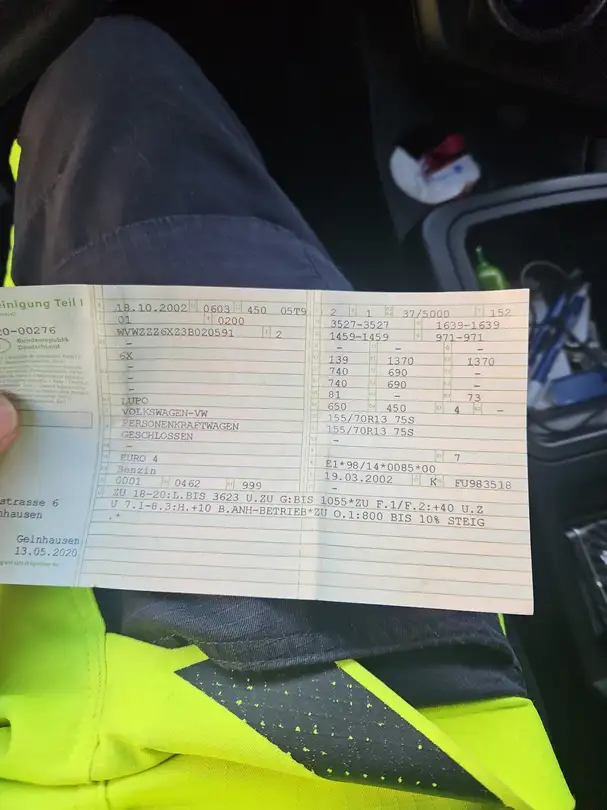 einigung Teil I
20-00276
Bundesrepublik
Deutschland
strasse 6
nhausen
Gelnhausen
13.05.2020
18.10.2002 0603 450 05T9
01 0200
WVWZZZ6XZ3B020591 2
-
6X
-
-
-
LUPO
VOLKSWAGEN-VW
PERSONENKRAFTWAGEN
GESCHLOSSEN
-
EURO 4
Benzin
0001 0462 999
2 1 37/5000 152
3527-3527 1639-1639
1459-1459 971-971
- - -
139 1370 1370
740 690 -
740 690 -
81 - 73
650 450 4 -
155/70R13 75S
155/70R13 75S
-
- 7
E1*98/14*0085*00
19.03.2002 K FU983518
ZU 18-20:L.BIS 3623 U.ZU G:BIS 1055*ZU F.1/F.2:+40 U.Z
U 7.1-8.3:H.+10 B.ANH-BETRIEB*ZU O.1:800 BIS 10% STEIG
.*